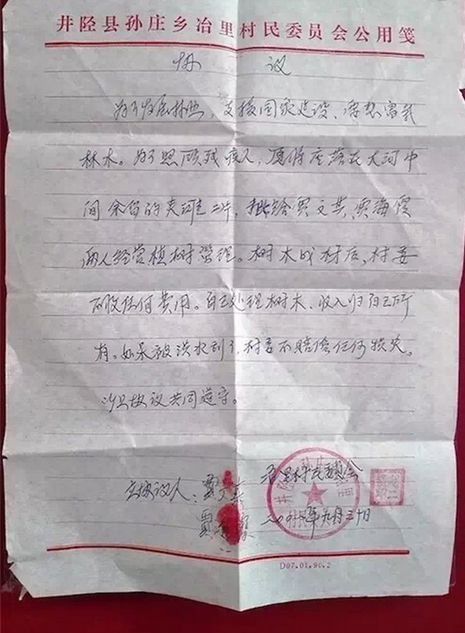 井陉县孙庄乡冶里村民委员会公用笺
协 议
为了发展林业，支援国家建设，
林木。为了照顾残疾人，愿将座落在大河中
间余留的荒滩二片，批给贾文其、贾海霞
两人经营植树管理。树木成材后，村委
不收任何费用。自己处理树木，收入归自己所
有。如果被洪水刮了，村委不赔偿任何损失。
协议共同遵守。
冶里村民委员会
立协议人：贾文其
贾海霞 年九月三十日
D07.01.90.2